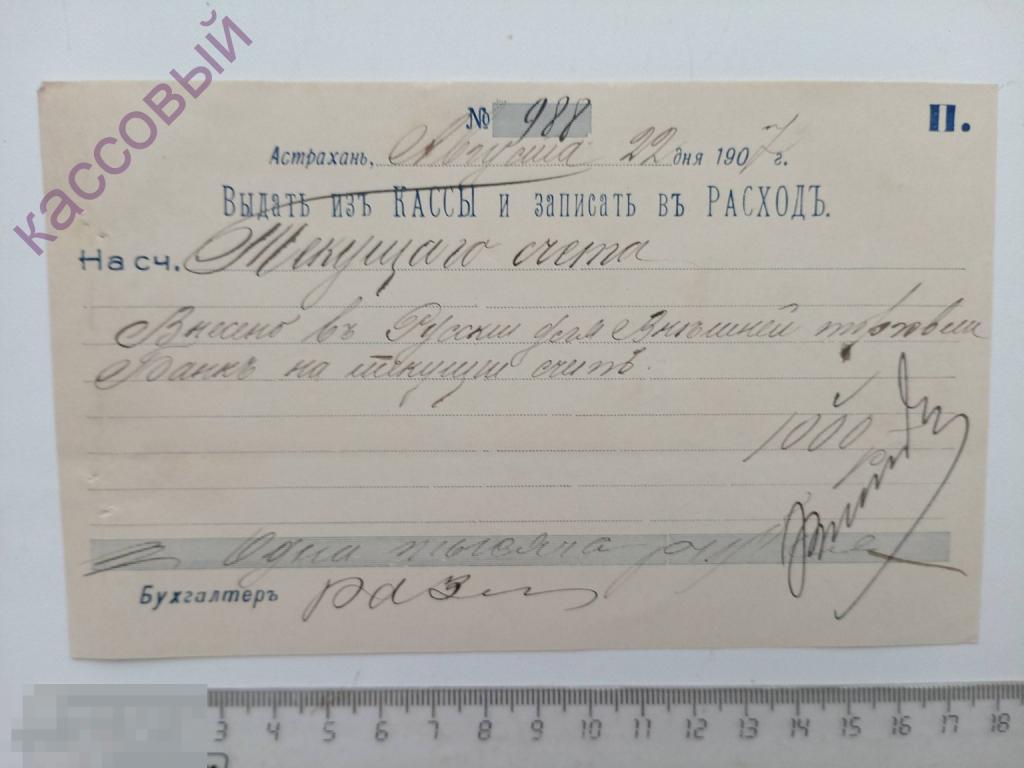 кассовый
№ 988 II.
Астрахань, Августа 22 дня 1907 г.
Выдать изъ КАССЫ и записать въ РАСХОДЪ.
На сч. Текущаго счета
Внесено въ Русскій для Внѣшней торговли
Банкъ на текущій счетъ.
1000 р
Одна тысяча руб
Бухгалтеръ
3 4 5 6 7 8 9 10 11 12 13 14 15 16 17 18